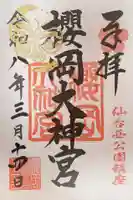 奉拝
櫻岡大神宮
仙台西公園鎮座
令和八年三月十四日